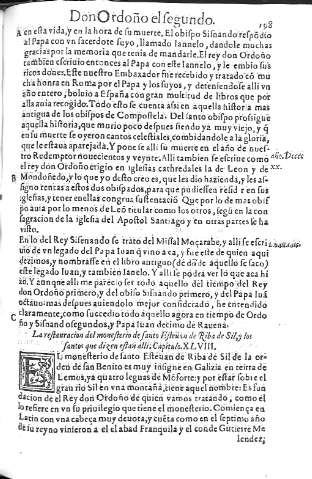 Don Ordoño el segundo. 198
A en esta vida, y en la hora de su muerte. El obispo Sisnando respõdio
al Papa con vn sacerdote suyo, llamado Iannelo, dandole muchas
gracias por la memoria que tenia de mandarle. El rey don Ordoño
tambien escriuio entonces al Papa con este Iannelo, y le embio sus
ricos dones. Este nuestro Embaxador fue recebido y tratado cõ mu
cha honra en Roma por el Papa y los suyos, y deteniendose alli vn
año entero, boluio a España con gran multitud de libros que por
alla auia recogido. Todo esto se cuenta assi en aquella historia mas
antigua de los obispos de Compostela. Del santo obispo prosigue
aquella historia, que murio poco despues siendo ya muy viejo, y q̃
en su muerte se oyeron cantos celestiales, combidandole a la gloria,
que le estaua aparejada. Y pone se alli su muerte en el año de nues-
tro Redemptor nouecientos y veynte. Alli tambien se escriue como
el rey don Ordoño erigio en iglesias cathedrales la de Leon y de
B Mondoñedo, y lo que yo desto creo es, que les dio hazienda, y les as-
signo rentas a estos dos obispados, para que pudiessen residir en sus
iglesias, y tener en ellas congrua sustentaciõ Que por lo de mas obis
po auia por lo menos de Leõ titular como los otros, segũ en la con
sagracion de la iglesia del Apostol Santiago y en otras partes se ha
visto.
En lo del Rey Sisenando se trato del Missal Moçarabe, y alli se escri
uio de vn legado del Papa Iuan
dezimos, y nombrasse en el libro antiguo
este legado Iuan, y tambien Ianelo. Y alli se podra ver lo que aca hi
zo. Y aunque alli me parecio ser todo aquello del tiempo del Rey
don Ordoño primero, y del obispo Sisnando primero, y del Papa Iuã
octauo: mas despues auiendolo mejor considerado, he entendido
C claramente, como succedio todo aquello agora en tiempo de Ordo
ño y Sisnando segundos, y Papa Iuan decimo de Rauena.
La restauracion del monesterio de santo Esteuan de Riba de Sil, y los
santos que dizen estan alli. Capitulo. XLVIII.
EL monesterio de santo Esteuan de Riba de Sil de la or-
den de san Benito es muy insigne en Galizia en tierra de
Lemos, ya quatro leguas de Mõforte: y por estar sobre el
gran rio Sil en vna montaña, tiene aquel nombre: Es fun
dacion de el Rey don Ordoño de quien vamos tratando, como el
lo refiere en vn su priuilegio que tiene el monesterio. Comiença en
Latin con vna cabeça muy deuota, y cuẽta como en el septimo año
de su reyno vinieron a el el abad Franquila y el conde Gutierre Me
lendez;